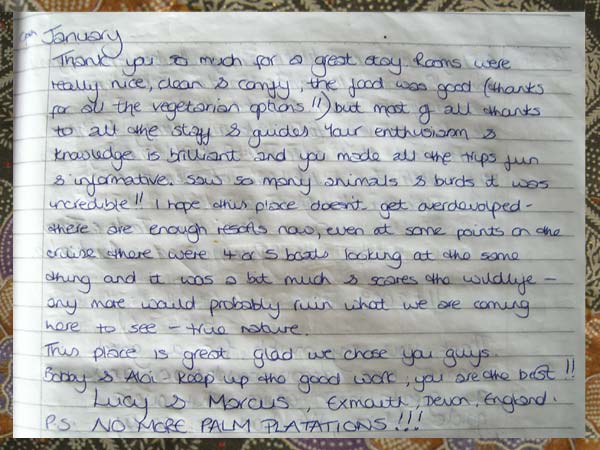 January
Thank you so much for a great stay. Rooms were
really nice, clean & comfy, the food was good (thanks
for all the vegetarian options!!) but most of all thanks
to all the staff & guides. Your enthusiasm &
knowledge is brilliant and you made all the trips fun
& informative. Saw so many animals & birds it was
incredible!! I hope this place doesn't get overdevolped -
there are enough resorts now, even at some points on the
cruise there were 4 or 5 boats looking at the same
thing and it was a bit much & scares the wildlife -
any more would probably ruin what we are coming
here to see - true nature.
This place is great glad we chose you guys.
Bobby & Aloi - keep up the good work, you are the best!!
Lucy & Marcus, Exmouth, Devon, England.
P.S. NO MORE PALM PLATATIONS!!!